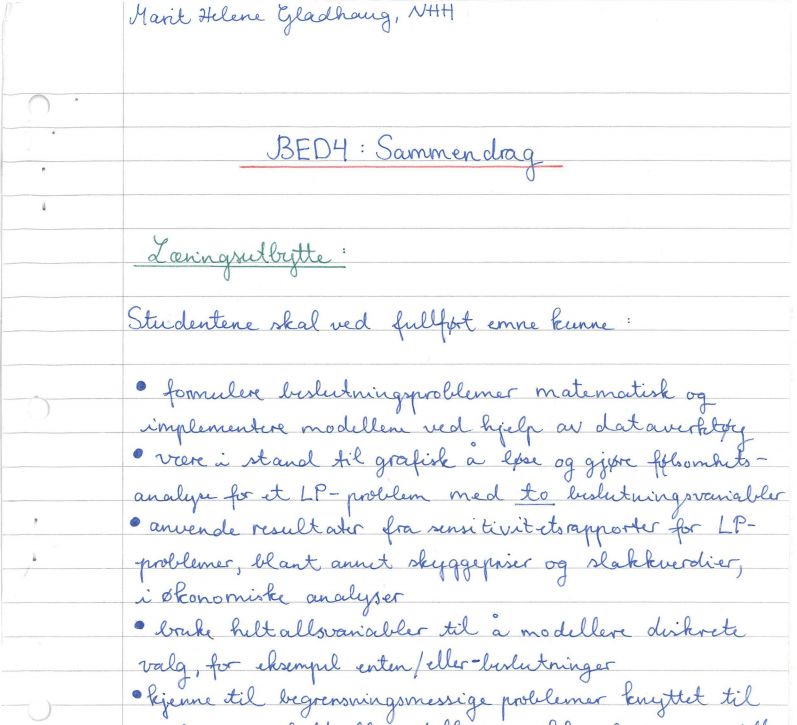 Marit Helene Gladhaug, NHH
BED4 : Sammendrag
Læringsutbytte :
Studentene skal ved fullført emne kunne :
• formulere beslutningsproblemer matematisk og
implementere modellene ved hjelp av dataverktøy
• være i stand til grafisk å løse og gjøre følsomhets-
analyse for et LP-problem med to beslutningsvariabler
• anvende resultater fra sensitivitetsrapporter for LP-
problemer, blant annet skyggepriser og slakkverdier,
i økonomiske analyser
• bruke heltallsvariabler til å modellere diskrete
valg, for eksempel enten/eller-beslutninger
• kjenne til begrensningsmessige problemer knyttet til